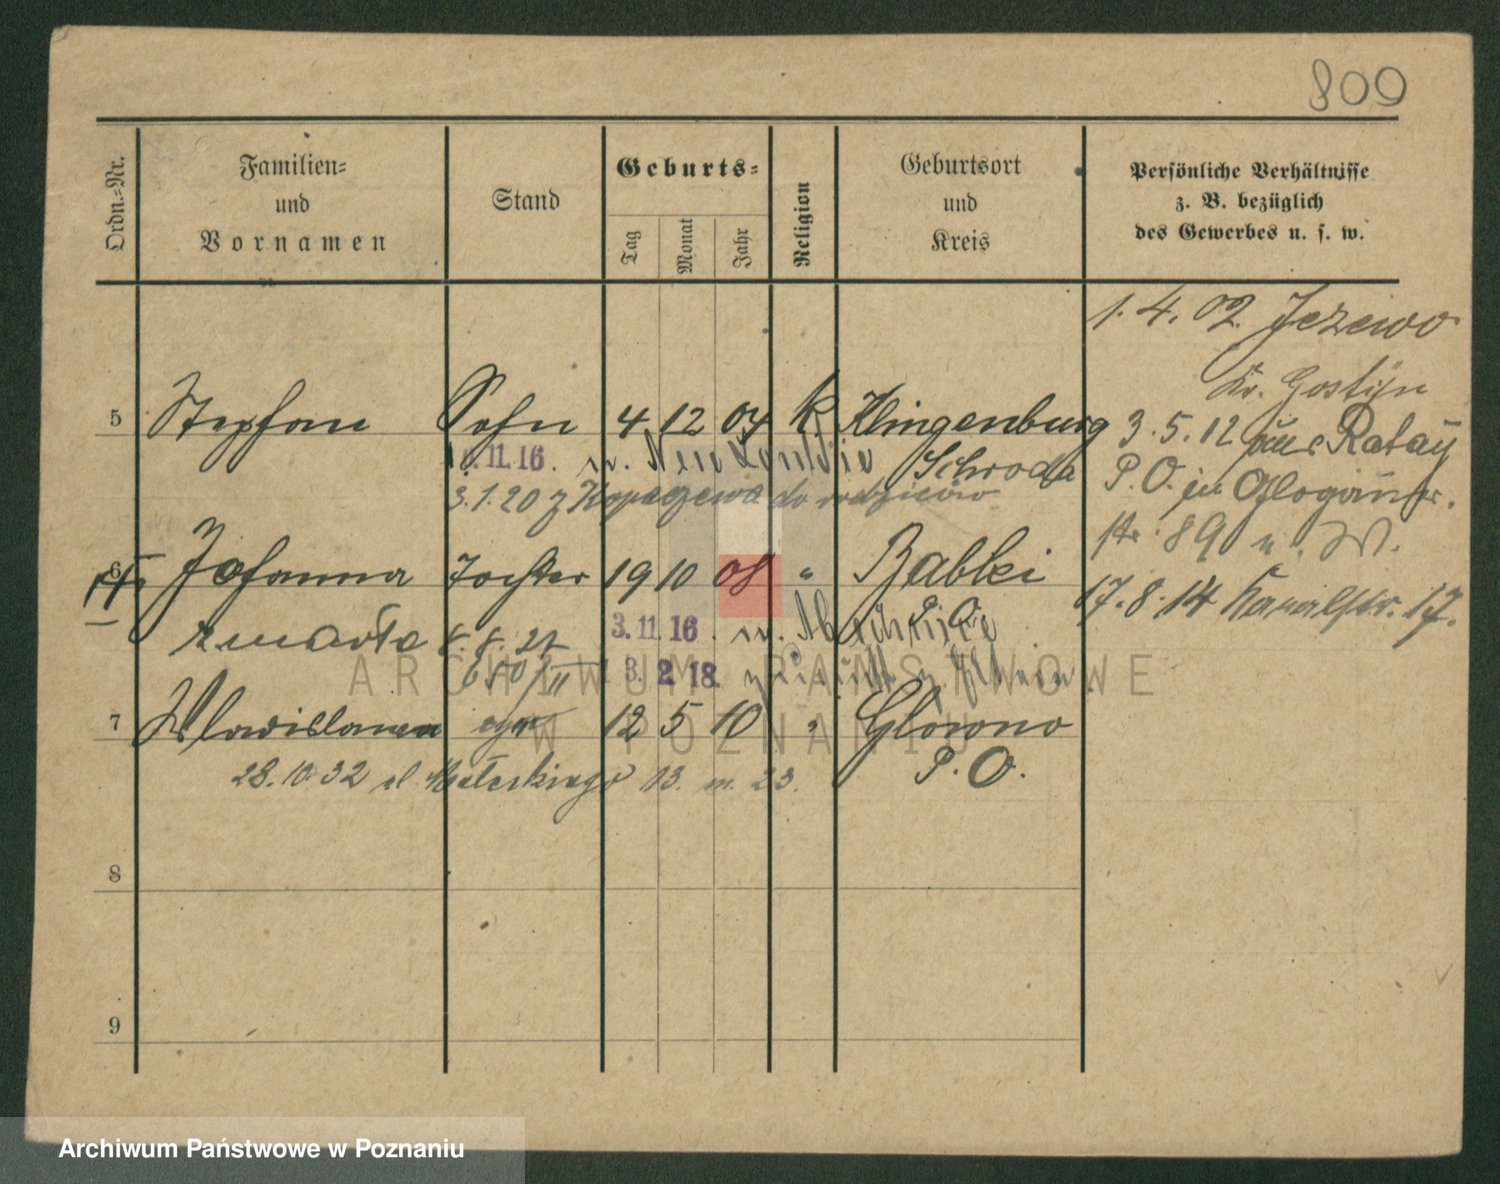 809
Ordn.-Nr.
Familien-
und
Vornamen
Stand
Geburts-
Tag
Monat
Jahr
Religion
Geburtsort
und
Kreis
Persönliche Verhältnisse
z. B. bezüglich
des Gewerbes u. s. w.
1. 4. 02 Jezewo
Kr. Gostyn
5 Stephan Sohn 4 12 04 K Klingenburg
Schroda
3. 5. 12 aus Ratay
P. O. in Glogauer-
str. 89 u. W.
11.16. n.
3.1.20 z do rodziców
6 Johanna Tochter 19 10 08 " Babki
P. O.
17. 8. 14 Kanalstr. 17.
zmarła 8. 8. 21
3.11.16.
3. 2. 18.
7 Wladislawa 12 5 10 " Glowno
P. O.
28.10.32 ul. Małeckiego 13. m. 23.
8
9
ARCHIWUM PAŃSTWOWE
W POZNANIU
Archiwum Państwowe w Poznaniu